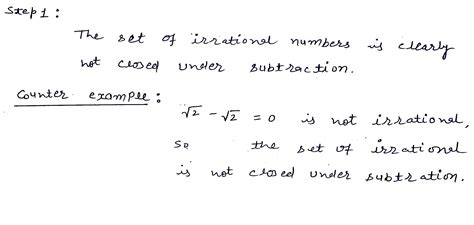 Step 1 :
The set of irrational numbers is clearly
not closed under subtraction.
Counter example :
√2 - √2 = 0 is not irrational,
so the set of irrational
is not closed under subtration.